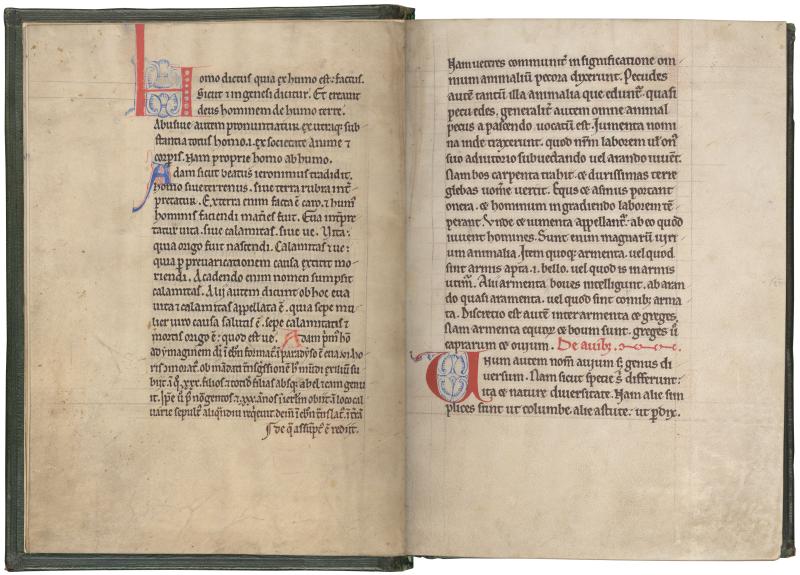 Homo dictus quia ex humo est factus.
Sicut in genesi dicitur. Et creauit
deus hominem de humo terre.
Abusiue autem pronuntiatur ex utraque sub
stantia totus homo. i. ex societate anime et
corporis. Nam proprie homo ab humo.
Adam sicut beatus ieronimus tradidit.
homo siue terrenus. siue terra rubra inter
pretatur. Ex terra enim facta est caro. et humus
hominis faciendi materies fuit. Eua interpre
tatur uita. siue calamitas. siue ue. Vita:
quia origo fuit nascendi. Calamitas et ue:
quia per preuaricationem causa extitit mo
riendi. A cadendo enim nomen sumpsit
calamitas. Alii autem dicunt ob hoc eua
uita et calamitas appellata est. quia sepe mu
lier uiro causa salutis est. sepe calamitatis et
mortis origo est: quod est ue. Adam primus homo
ad ymaginem dei
filios et totidem filias absque abel et cain genu
it.
uarie sepultus
de qua assumptus est rediit.
Nam ueteres communiter in significatione om
nium animalium pecora dixerunt. Pecudes
autem tantum illa animalia que edunt. quasi
pecuedes. generaliter autem omne animal
pecus a pascendo uocatum est. Iumenta nomi
na inde traxerunt. quod nostrum laborem uel onus
suo adiutorio subuectando uel arando iuuent.
Nam bos carpenta trahit. et durissimas terre
glebas uomere uertit. Equus et asinus portant
onera. et hominum in gradiendo laborem tem
perant. Vnde et iumenta appellantur. ab eo quod
iuuent homines. Sunt enim magnarum uiri
um animalia. Item quoque armenta. uel quod
sint armis apta. i. bello. uel quod is in armis
utimur. Alii armenta boues intelligunt. ab aran
do quasi aramenta. uel quod sint cornibus arma
ta. Discretio est autem inter armenta et greges.
Nam armenta equorum et boum sunt. greges uero
caprarum et ouium. De auibus.
Unum autem nomen auium sed genus di
uersum. Nam sicut specie sibi differunt:
ita et nature diuersitate. Nam alie sim
plices sunt ut columbe. alie astute: ut perdix.